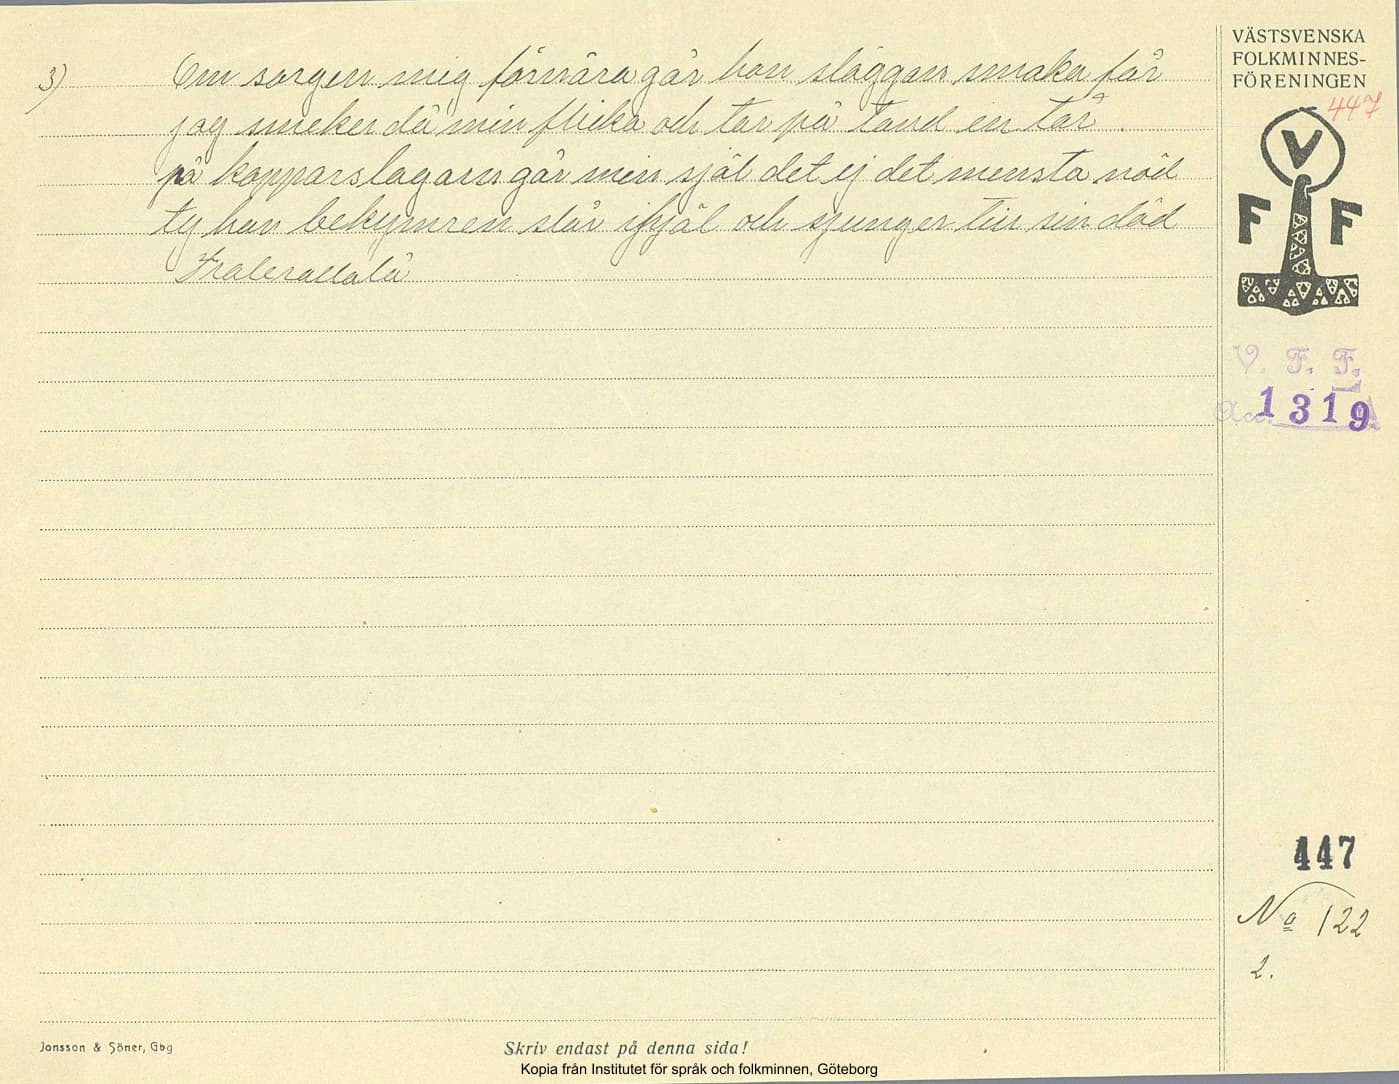 3) Om sorgen mig förnära går han släggan smaka får
jag smeker då min flicka och tar på tand en tår.
på kopparslagarn går min själ det ej det minsta nöd
ty han bekymren slår ihjäl och sjunger till sin död
Fraleralala
VÄSTSVENSKA
FOLKMINNES-
FÖRENINGEN
447
V
F F
V. F. F.
Acc. 1319
447
No 122
2.
Jonsson & Söner, Gbg
Skriv endast på denna sida!
Kopia från Institutet för språk och folkminnen, Göteborg